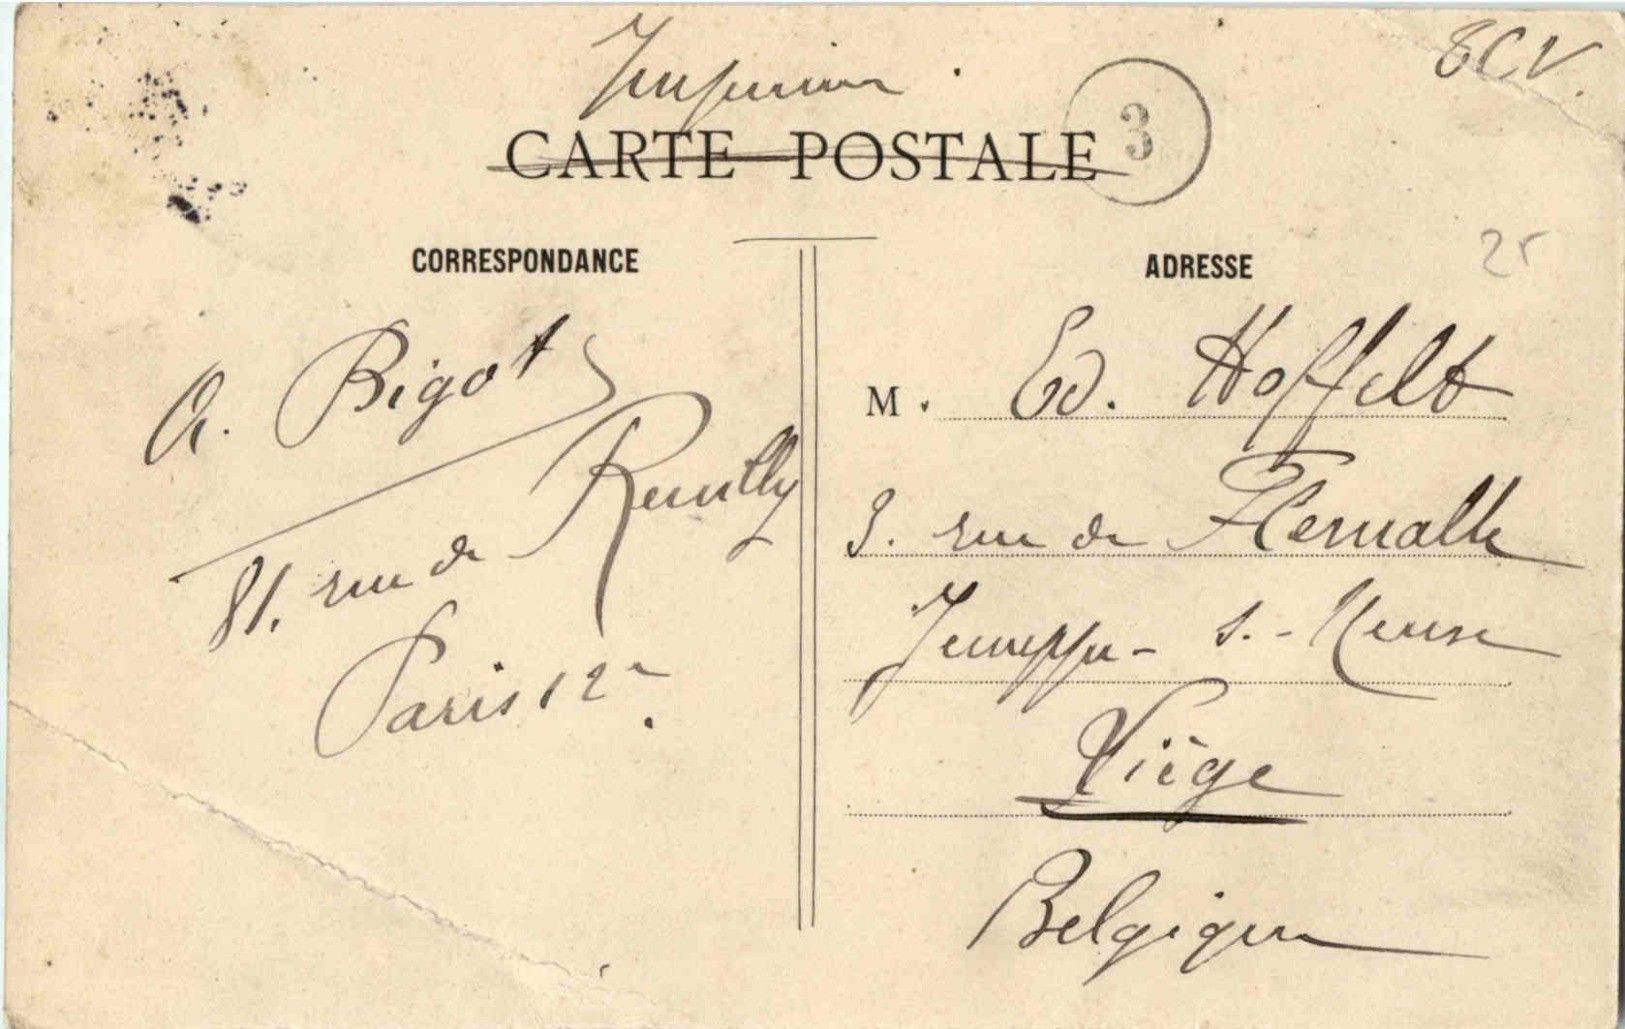 Imprimé
8CV.
CARTE POSTALE
3
CORRESPONDANCE
ADRESSE
25
A. Bigot
81. rue de Reuilly
Paris 12e
M. Ed. Hoffelt
3. rue de Flemalle
Jemeppe - s. - Meuse
Liège
Belgique